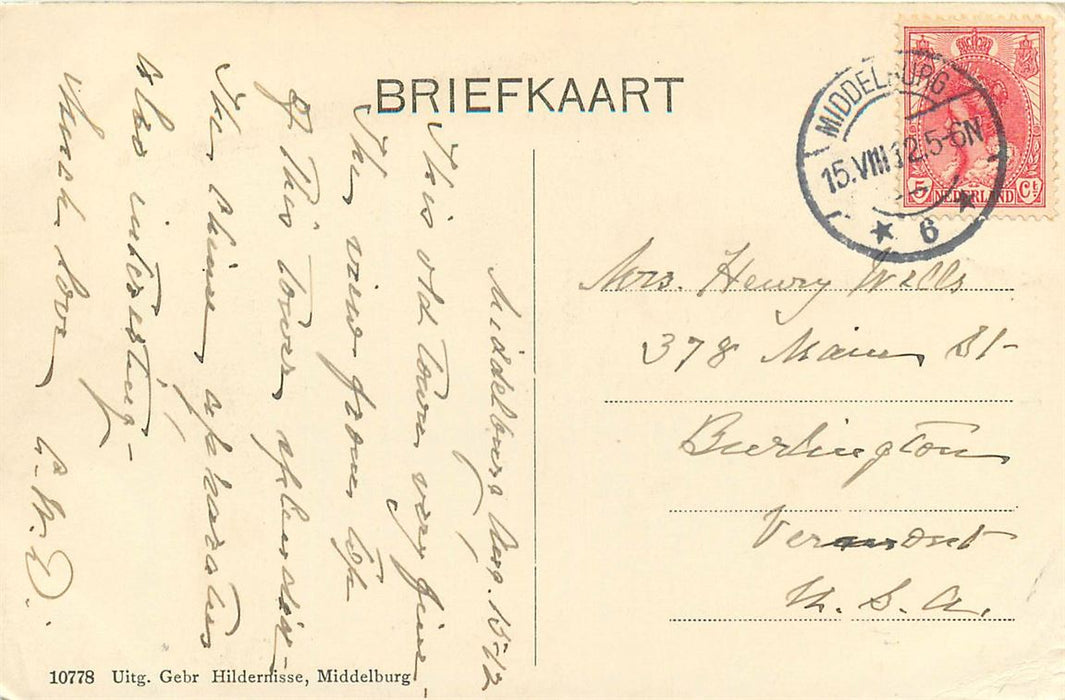 BRIEFKAART
MIDDELBURG
15.VIII.12.5-6N
6
5 NEDERLAND Ct
Mrs. Henry Wells
378 Main St-
Burlington
Vermont
U. S. A.
Middelburg Aug. 15-12
This old town very fine-
The view from top
of this tower splendid-
The chime apparatus
also interesting-
Much love
10778 Uitg. Gebr Hildernisse, Middelburg